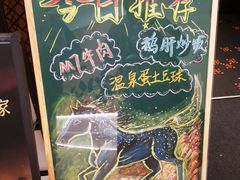 今日推荐
M7牛肉
鹅肝炒饭
温泉蛋土豆球
家